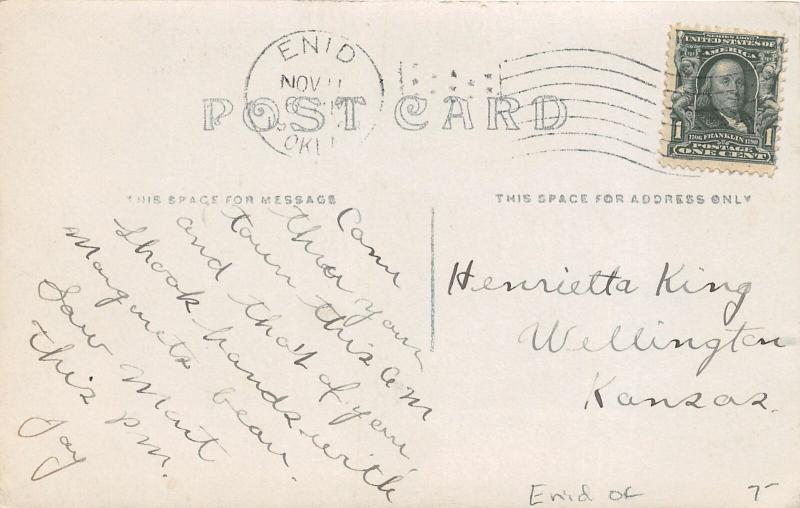 ENID
NOV 11
OKL
POST CARD
SERIES 1902
UNITED STATES OF
AMERICA
1706 FRANKLIN 1790
1 POSTAGE 1
ONE CENT
THIS SPACE FOR MESSAGE
THIS SPACE FOR ADDRESS ONLY
Came
thru your
town this am
and thot of you
Shook hands with
Margarets beau.
Saw Mart
this pm.
Jay
Henrietta King
Wellington
Kansas.
Enid OK
7-